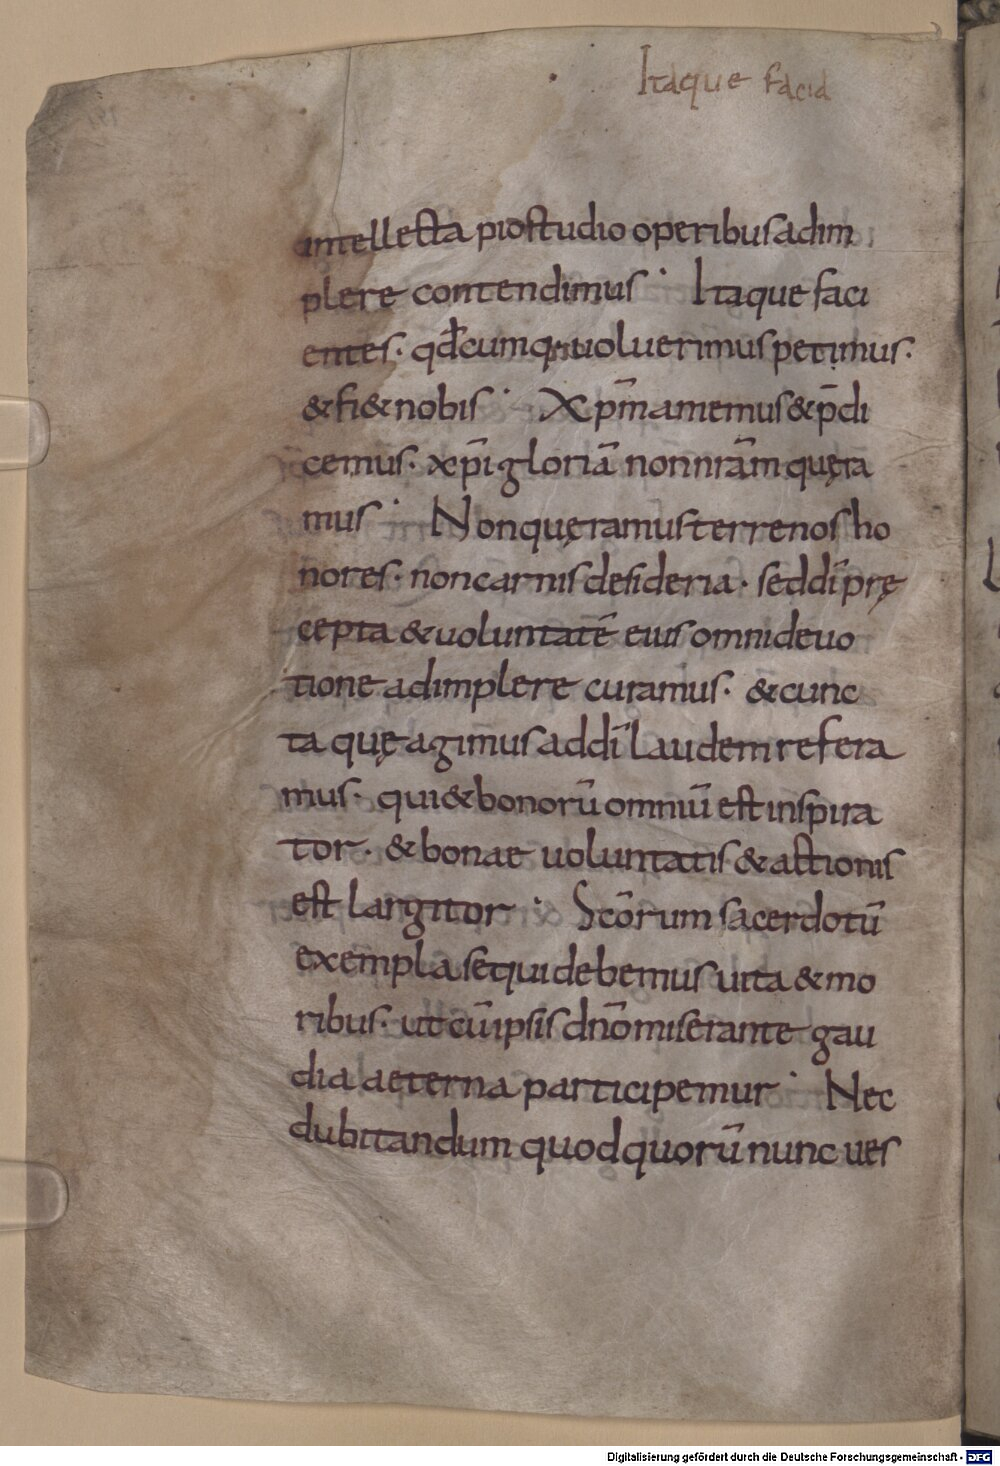 Itaque facia
intellecta pio studio operibus adim
plere contendimus· Itaque faci
entes· qđcumq; uoluerimus petimus·
& fi& nobis· Xp̄m amemus & p̄di
cemus· xp̄i gloriā non nr̄am quęra
mus· Non quęramus terrenos ho
nores· non carnis desideria· sed dī prę
cepta & uoluntatē eius omni deuo
tione adimplere curamus· & cunc
ta quę agimus ad dī laudem refera
mus· qui & bonorū omniū est inspira
tor· & bonae uoluntatis & actionis
est largitor· Scōrum sacerdotū
exempla sequi debemus uita & mo
ribus· ut cū ipsis dn̄o miserante gau
dia aeterna participemur· Nec
dubitandum quod quorū nunc ues
Digitalisierung gefördert durch die Deutsche Forschungsgemeinschaft - DFG